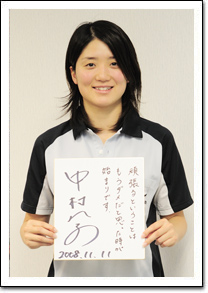 頑張るということは
もうダメだと思った時が
始まりです
中村
2008.11.11